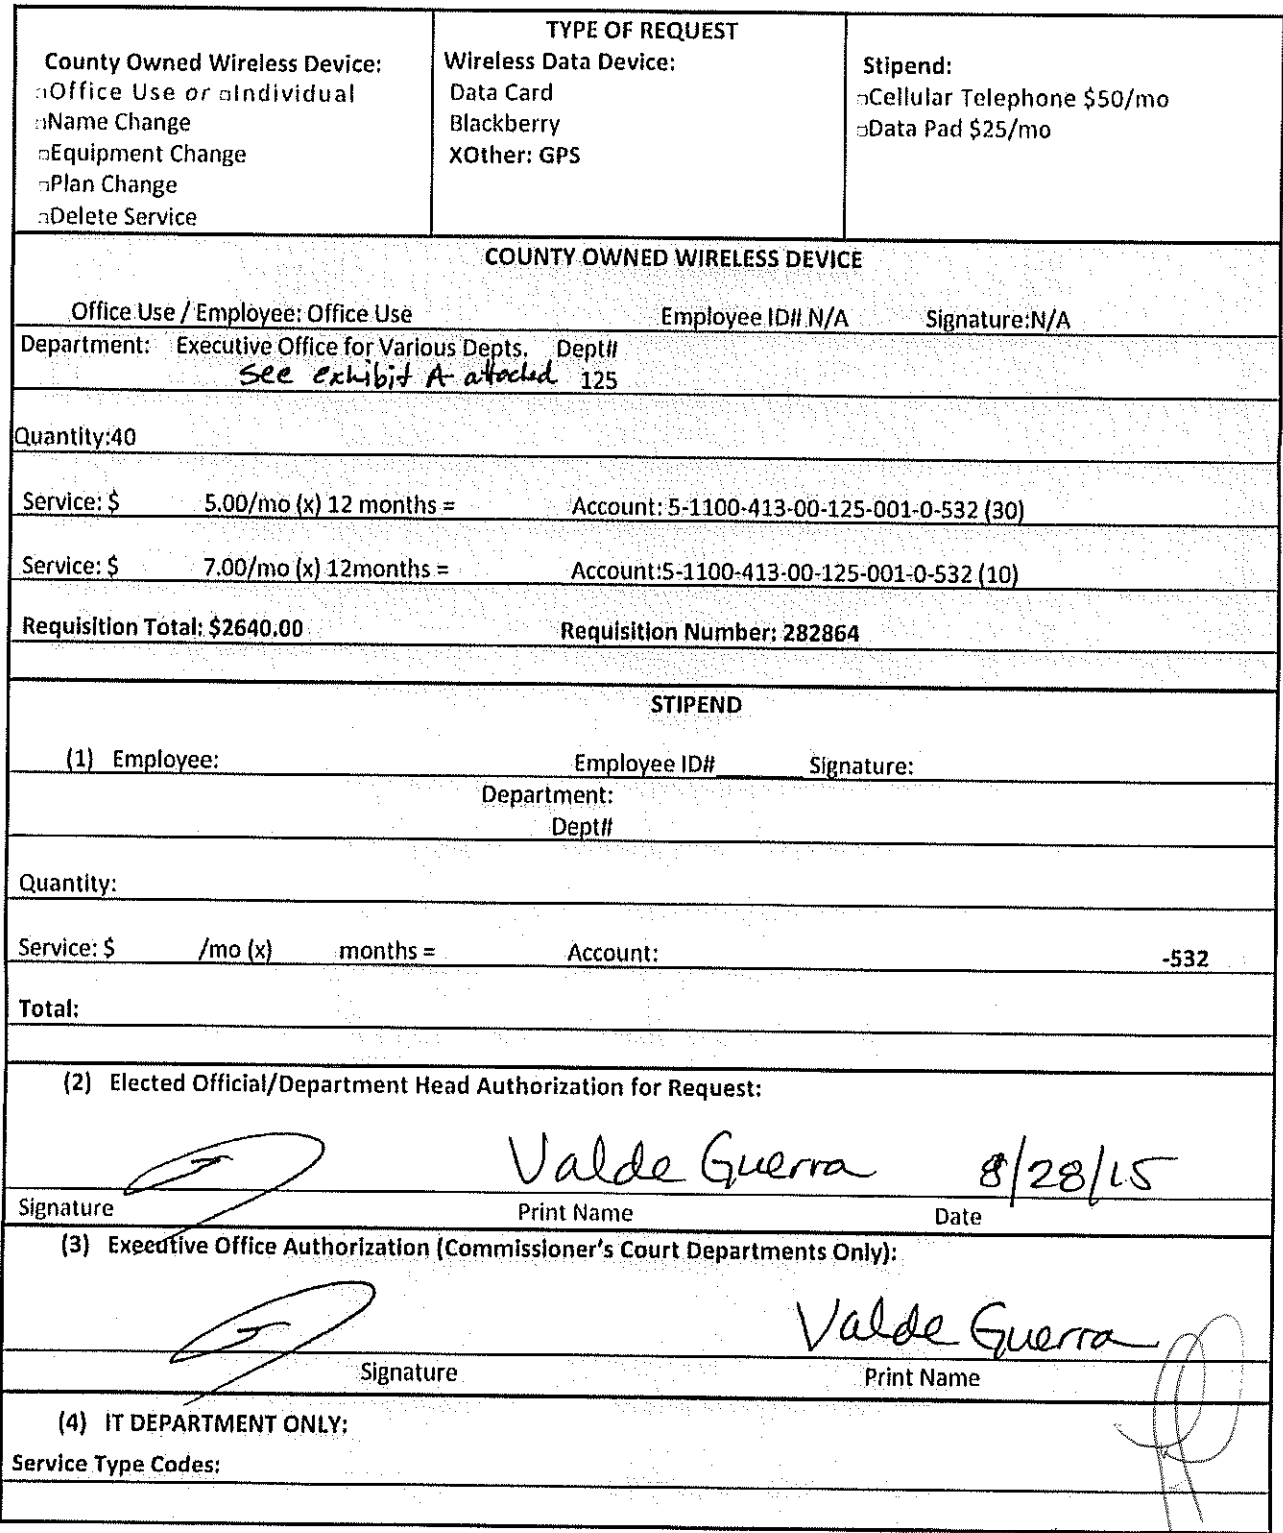 TYPE OF REQUEST
County Owned Wireless Device:
□Office Use or □Individual
□Name Change
□Equipment Change
□Plan Change
□Delete Service
Wireless Data Device:
Data Card
Blackberry
XOther: GPS
Stipend:
□Cellular Telephone $50/mo
□Data Pad $25/mo
COUNTY OWNED WIRELESS DEVICE
Office Use / Employee: Office Use Employee ID# N/A Signature:N/A
Department: Executive Office for Various Depts. Dept#
See exhibit A attached 125
Quantity:40
Service: $ 5.00/mo (x) 12 months = Account: 5-1100-413-00-125-001-0-532 (30)
Service: $ 7.00/mo (x) 12months = Account:5-1100-413-00-125-001-0-532 (10)
Requisition Total: $2640.00 Requisition Number: 282864
STIPEND
(1) Employee: Employee ID# Signature:
Department:
Dept#
Quantity:
Service: $ /mo (x) months = Account: -532
Total:
(2) Elected Official/Department Head Authorization for Request:
Valde Guerra 8/28/15
Signature Print Name Date
(3) Executive Office Authorization (Commissioner's Court Departments Only):
Valde Guerra
Signature Print Name
(4) IT DEPARTMENT ONLY:
Service Type Codes: